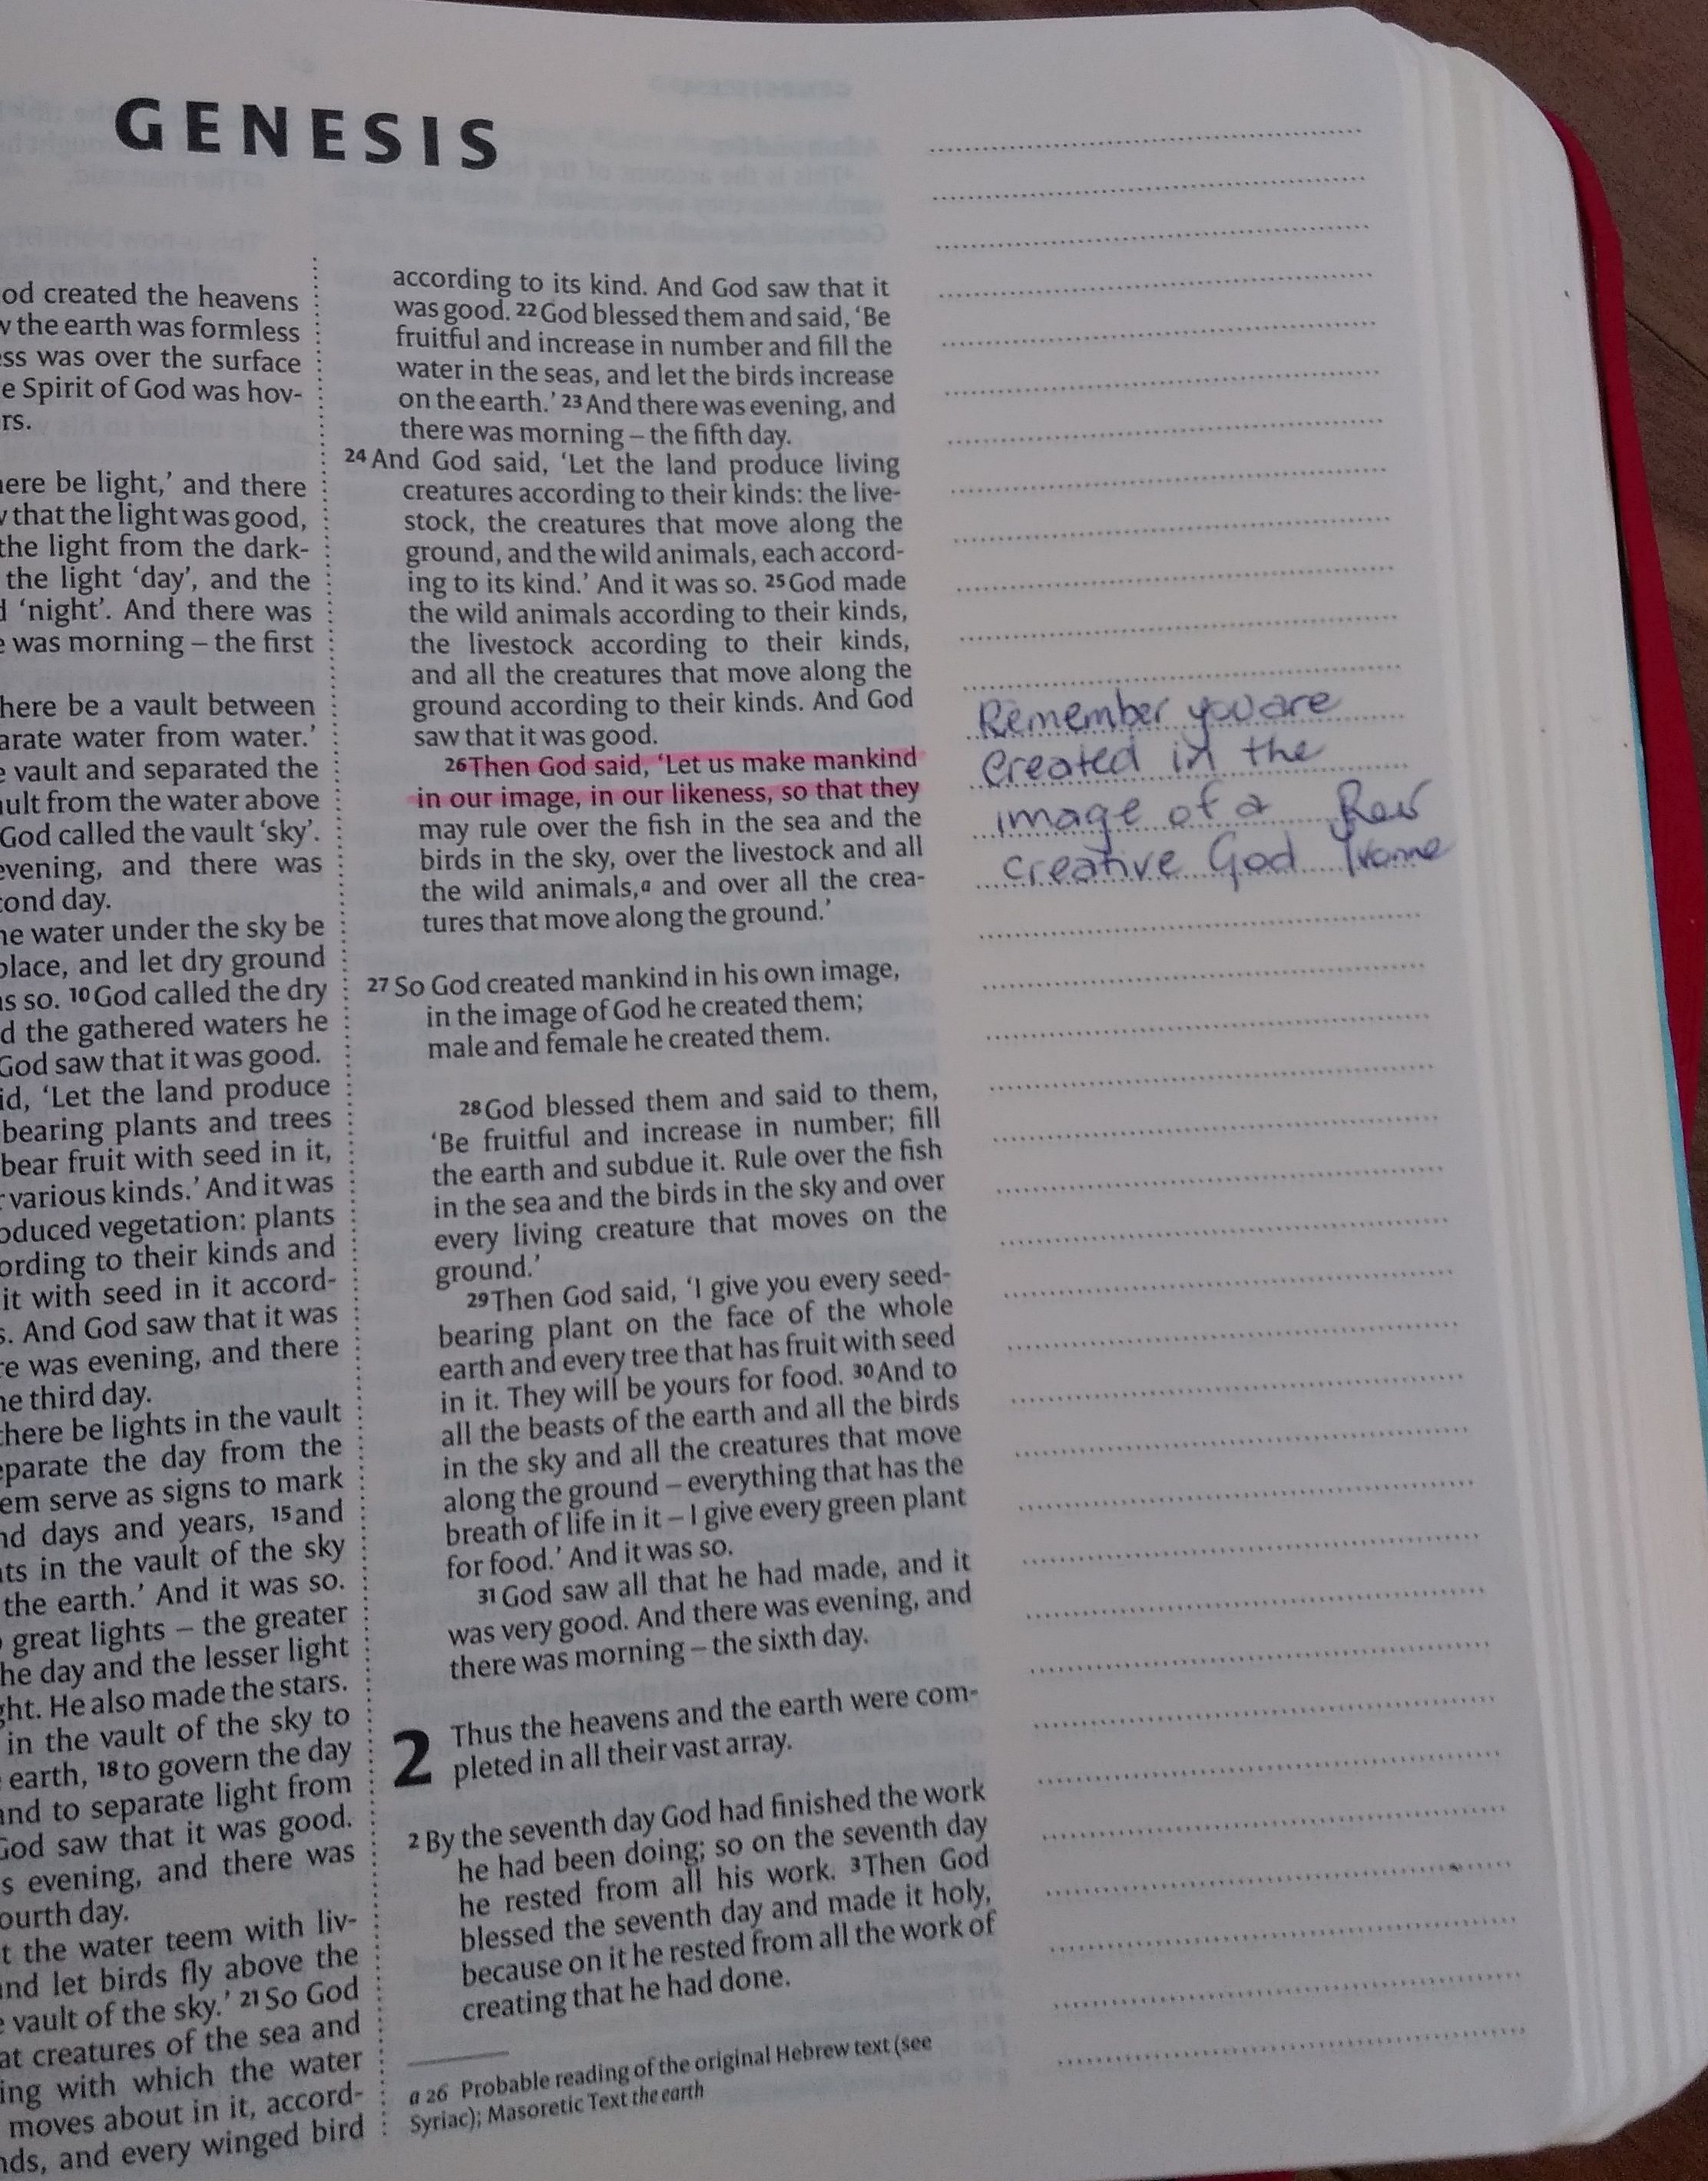 GENESIS
od created the heavens
w the earth was formless
ess was over the surface
e Spirit of God was hov-
rs.
here be light,’ and there
w that the light was good,
the light from the dark-
the light ‘day’, and the
d ‘night’. And there was
e was morning – the first
here be a vault between
arate water from water.’
e vault and separated the
ault from the water above
God called the vault ‘sky’.
evening, and there was
cond day.
he water under the sky be
place, and let dry ground
as so. 10 God called the dry
d the gathered waters he
God saw that it was good.
id, ‘Let the land produce
bearing plants and trees
bear fruit with seed in it,
r various kinds.’ And it was
oduced vegetation: plants
ording to their kinds and
it with seed in it accord-
s. And God saw that it was
re was evening, and there
he third day.
here be lights in the vault
eparate the day from the
em serve as signs to mark
nd days and years, 15 and
hts in the vault of the sky
the earth.’ And it was so.
o great lights – the greater
he day and the lesser light
ght. He also made the stars.
in the vault of the sky to
earth, 18 to govern the day
and to separate light from
God saw that it was good.
s evening, and there was
ourth day.
t the water teem with liv-
and let birds fly above the
e vault of the sky.’ 21 So God
at creatures of the sea and
ing with which the water
moves about in it, accord-
nds, and every winged bird
according to its kind. And God saw that it
was good. 22 God blessed them and said, ‘Be
fruitful and increase in number and fill the
water in the seas, and let the birds increase
on the earth.’ 23 And there was evening, and
there was morning – the fifth day.
24 And God said, ‘Let the land produce living
creatures according to their kinds: the live-
stock, the creatures that move along the
ground, and the wild animals, each accord-
ing to its kind.’ And it was so. 25 God made
the wild animals according to their kinds,
the livestock according to their kinds,
and all the creatures that move along the
ground according to their kinds. And God
saw that it was good.
26 Then God said, ‘Let us make mankind
in our image, in our likeness, so that they
may rule over the fish in the sea and the
birds in the sky, over the livestock and all
the wild animals,a and over all the crea-
tures that move along the ground.’
27 So God created mankind in his own image,
in the image of God he created them;
male and female he created them.
28 God blessed them and said to them,
‘Be fruitful and increase in number; fill
the earth and subdue it. Rule over the fish
in the sea and the birds in the sky and over
every living creature that moves on the
ground.’
29 Then God said, ‘I give you every seed-
bearing plant on the face of the whole
earth and every tree that has fruit with seed
in it. They will be yours for food. 30 And to
all the beasts of the earth and all the birds
in the sky and all the creatures that move
along the ground – everything that has the
breath of life in it – I give every green plant
for food.’ And it was so.
31 God saw all that he had made, and it
was very good. And there was evening, and
there was morning – the sixth day.
2 Thus the heavens and the earth were com-
pleted in all their vast array.
2 By the seventh day God had finished the work
he had been doing; so on the seventh day
he rested from all his work. 3 Then God
blessed the seventh day and made it holy,
because on it he rested from all the work of
creating that he had done.
a 26 Probable reading of the original Hebrew text (see
Syriac); Masoretic Text the earth
Remember you are
Created in the
image of a Rev
creative God Yvonne